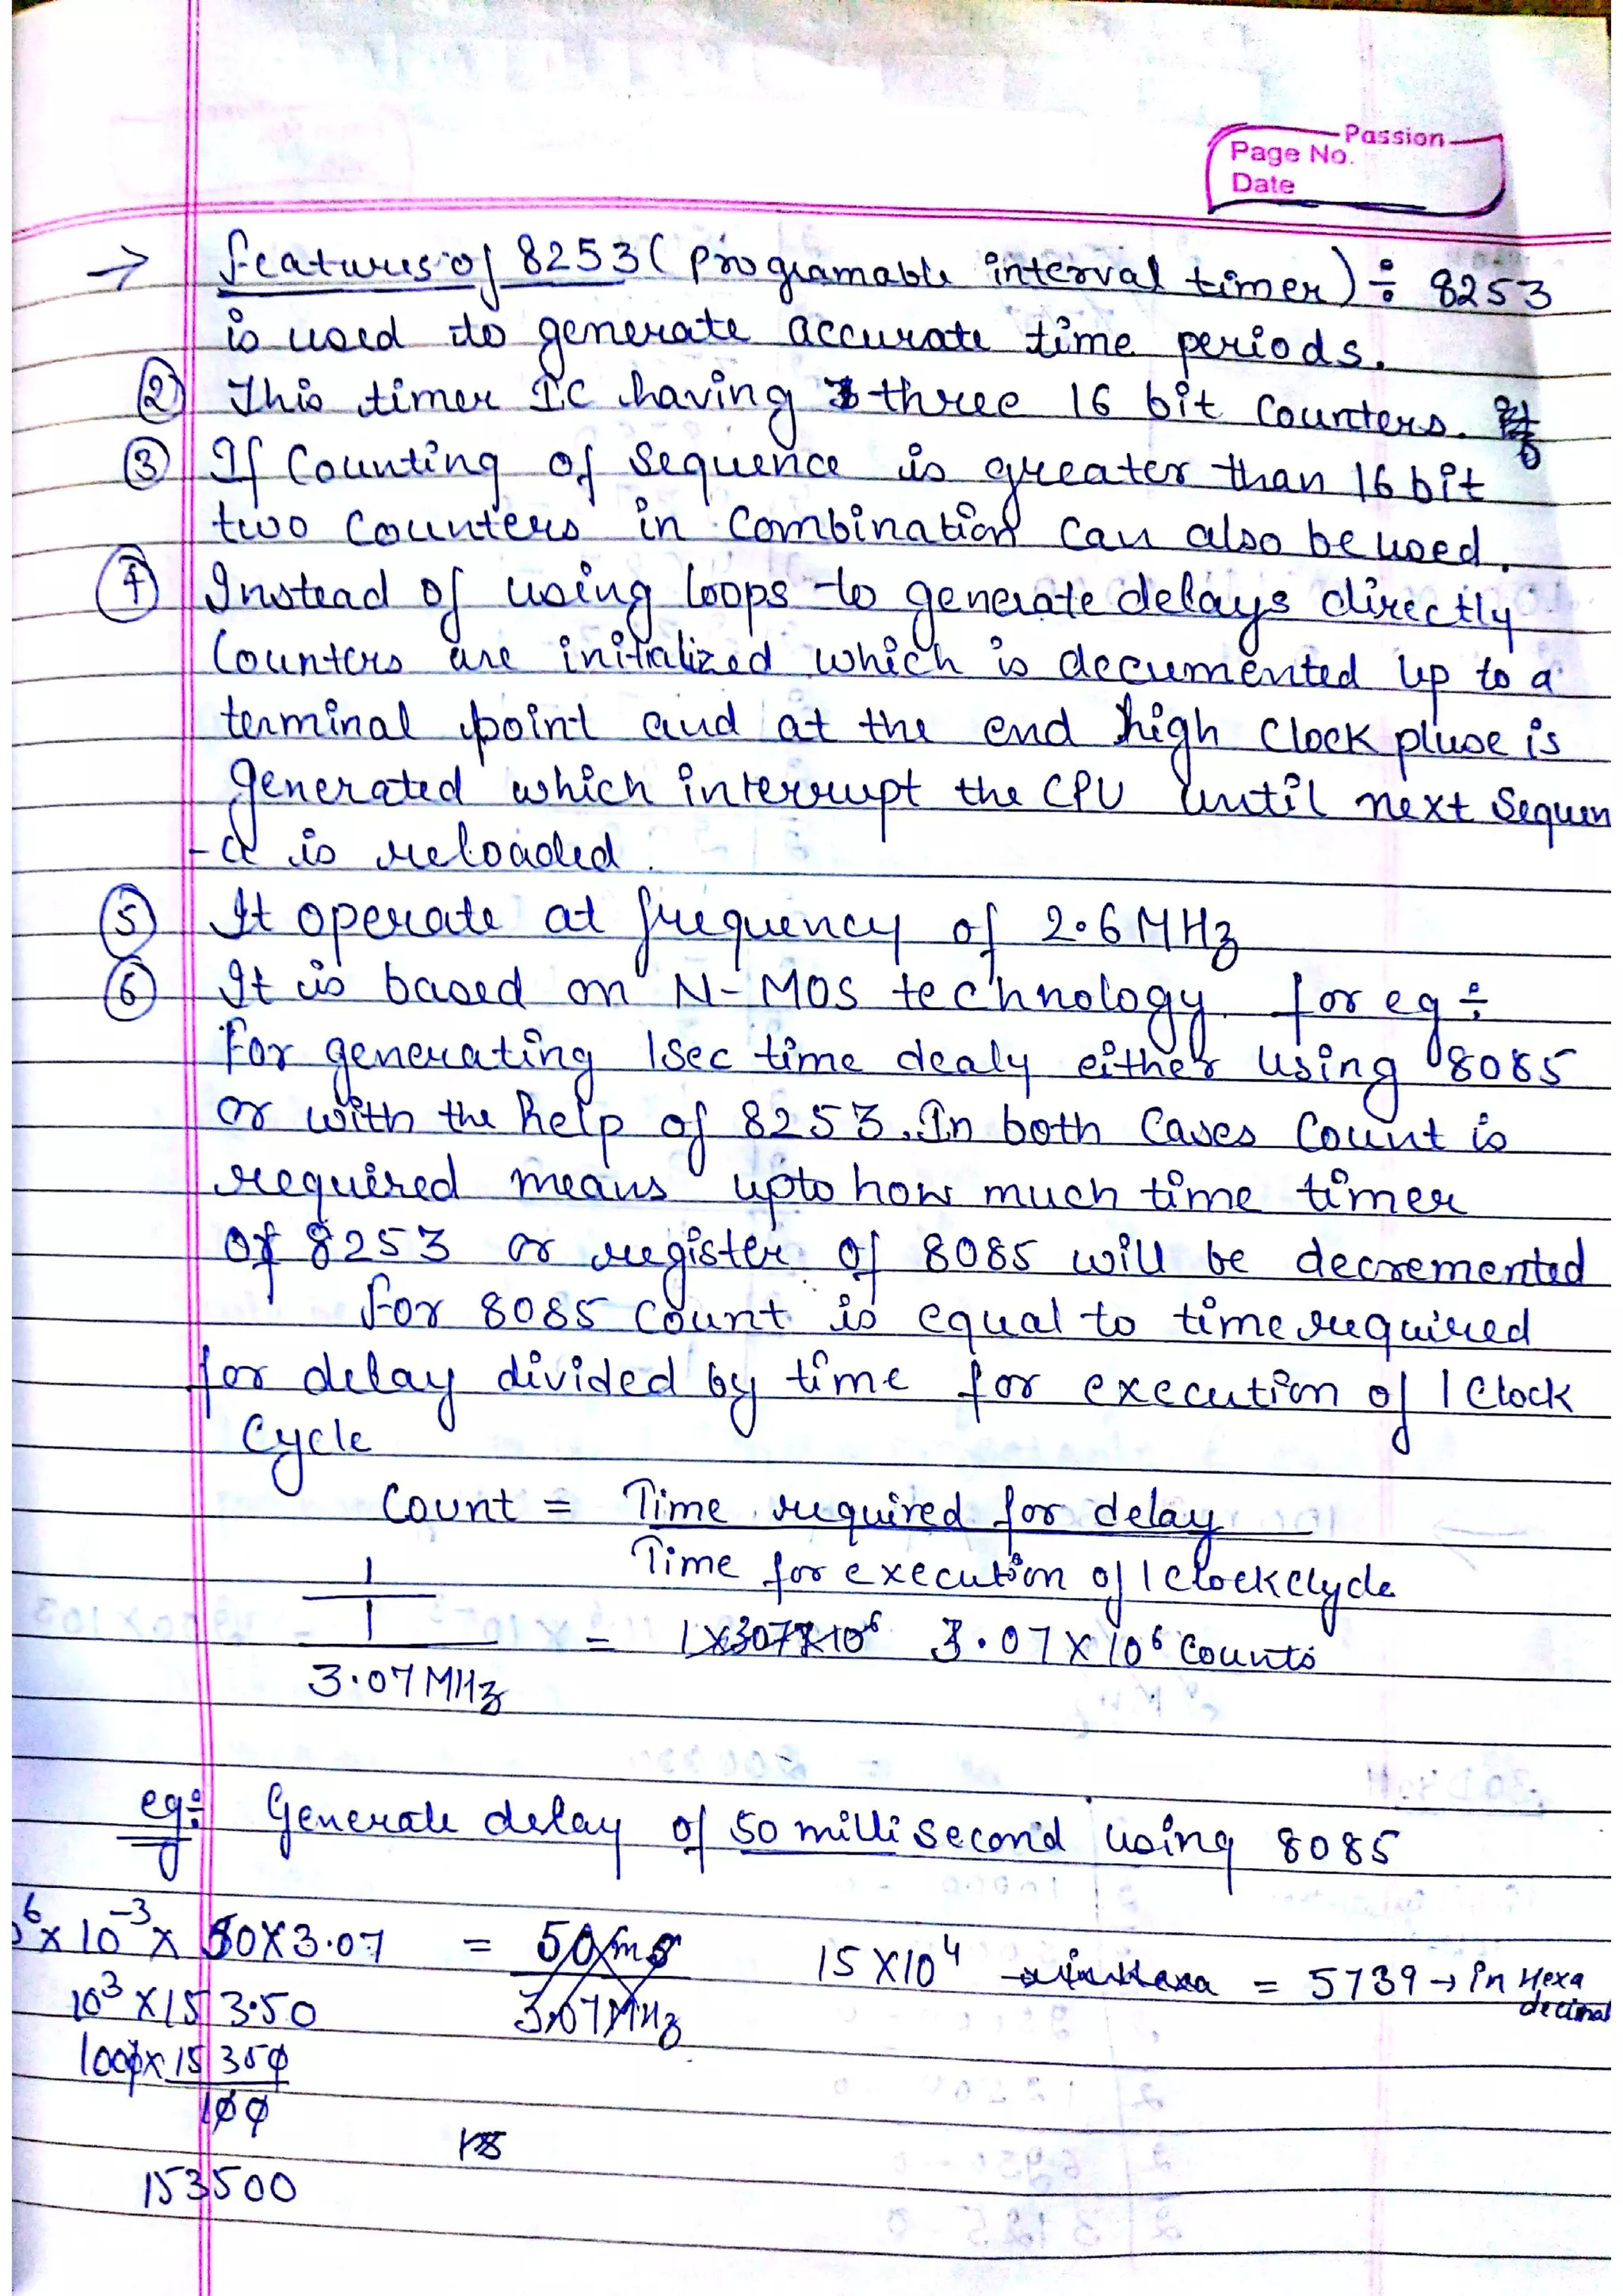 Passion
Page No.
Date
→ features of 8253 ( programable interval timer) ÷ 8253
is used to generate accurate time periods.
② This timer IC having three 16 bit counters.
③ If Counting of Sequence is greater than 16 bit
two Counters in Combination can also be used.
④ Instead of using loops to generate delays directly
Counters are initialized which is decumented up to a
terminal point and at the end high clock pluse is
generated which interrupt the CPU until next Sequen
-ce is reloaded.
⑤ It operate at frequency of 2.6 MHz
⑥ It is based on N-MOS technology. for eg ÷
For generating 1sec time dealy either using 8085
or with the help of 8253. In both Cases Count is
required means upto how much time timer
of 8253 or register of 8085 will be decremented
for 8085 Count is equal to time required
for delay divided by time for execution of 1 Clock
Cycle
Count = Time required for delay
Time for execution of 1 clockclycle
1
1
= 1x307x10⁶ 3.07 x 10⁶ Counts
3.07 MHz
eg ÷ Generate delay of 50 milli second using 8085
⁶x 10⁻³ x 50x3.07 = 50ms 15 x 10⁴ = 5739 → in Hexa
decimal
10³ x 153.50 3.07MHz
1000x 15350
100
153500